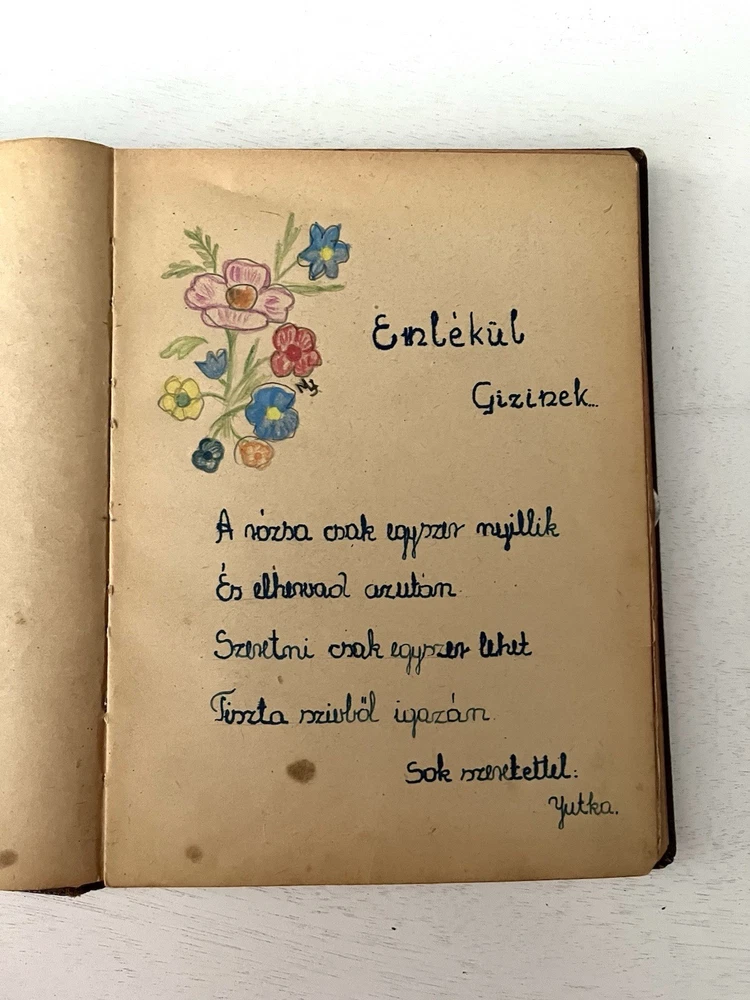 Emlékül
Gizinek...
A rózsa csak egyszer nyillik
És elhervad azután
Szeretni csak egyszer lehet
Tiszta szivből igazán.
Sok szeretettel:
Yutka.